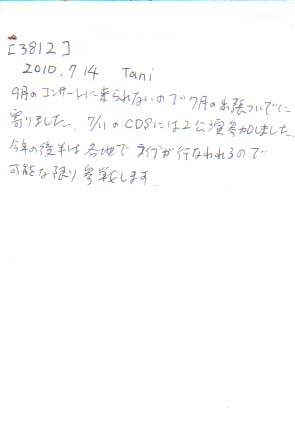 [3812]
2010.7.14 Tani
9月のコンサートに来られないので7月の出張ついでに
寄りました。7/11のCDSには2公演参加しました。
今年の後半は各地でライブが行なわれるので
可能な限り参戦します。